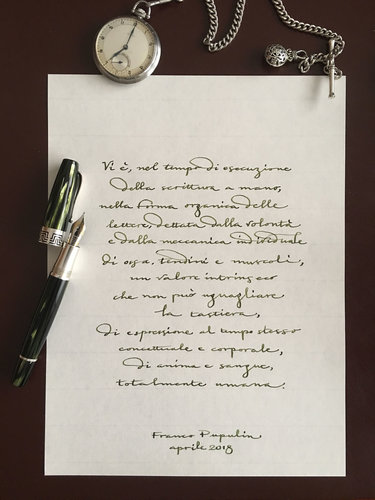 Vi è, nel tempo di esecuzione
della scrittura a mano,
nella forma organica delle
lettere, dettata dalla volontà
e dalla meccanica individuale
di ossa, tendini e muscoli,
un valore intrinseco
che non può uguagliare
la tastiera,
di espressione al tempo stesso
concettuale e corporale,
di anima e sangue,
totalmente umana.
Franco Pupulin
aprile 2018